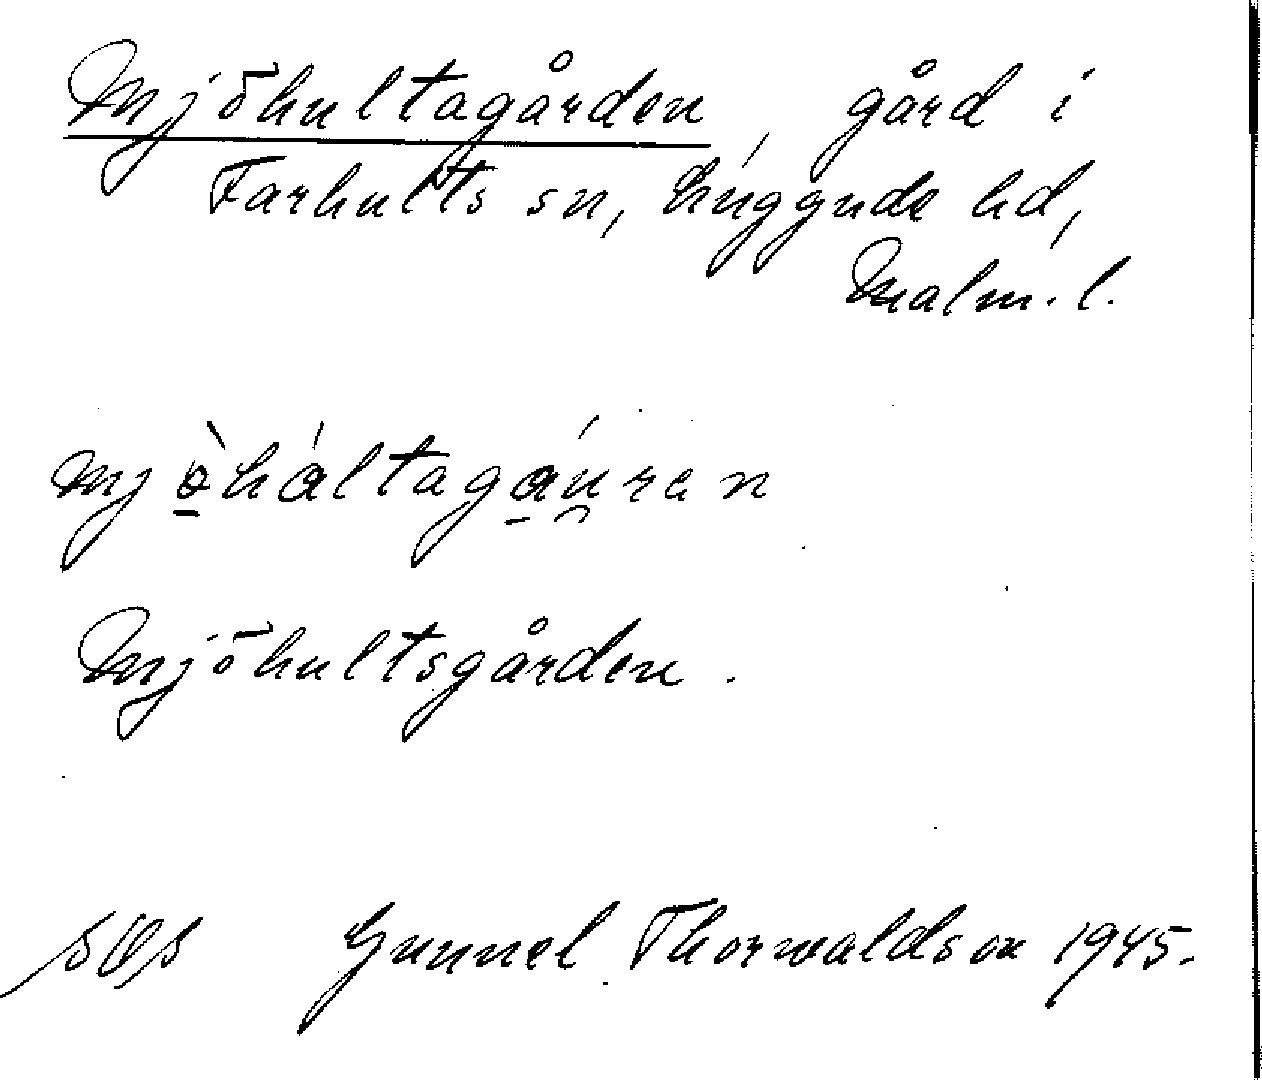 Mjöhultagården, gård i
Farhults sn, Luggude hd,
Malm. l.
mjò̱háltaga̱u̯ren
Mjöhultsgården.
Gunnel Thorwaldson 1945.